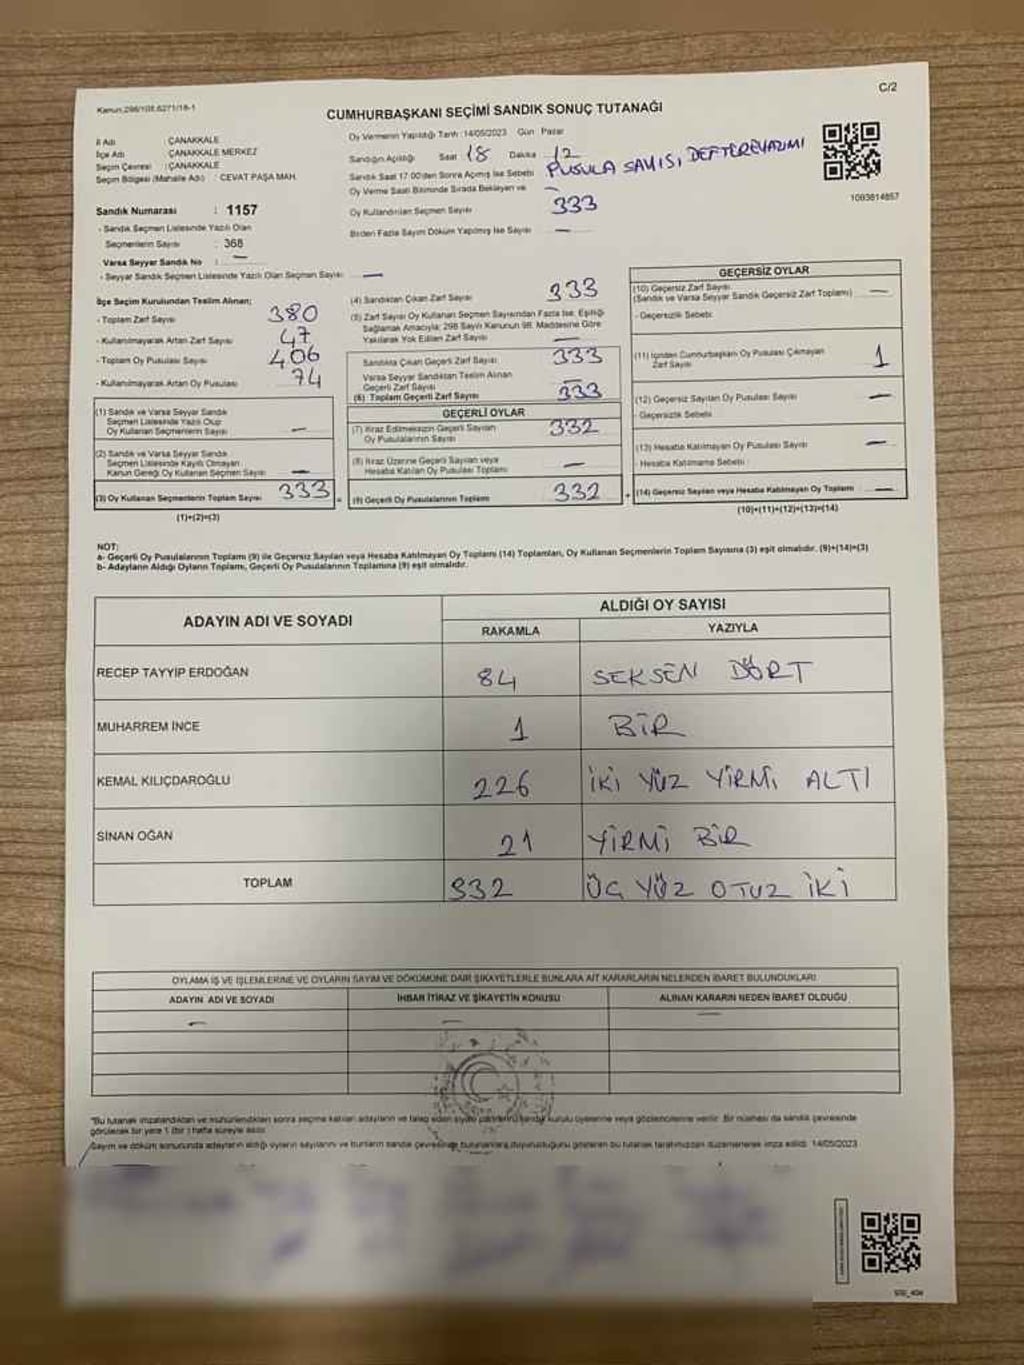 C/2
Kanun:298/YGE:6271/16-1
CUMHURBAŞKANI SEÇİMİ SANDIK SONUÇ TUTANAĞI
İl Adı ÇANAKKALE
İlçe Adı ÇANAKKALE MERKEZ
Seçim Çevresi : ÇANAKKALE
Seçim Bölgesi (Mahalle Adı) : CEVAT PAŞA MAH.
Sandık Numarası : 1157
- Sandık Seçmen Listesinde Yazılı Olan
Seçmenlerin Sayısı : 368
Varsa Seyyar Sandık No : —
- Seyyar Sandık Seçmen Listesinde Yazılı Olan Seçmen Sayısı: —
Oy Vermenin Yapıldığı Tarih :14/05/2023 Gün Pazar
Sandığın Açıldığı Saat 18 Dakika 12
Sandık Saat 17:00'den Sonra Açılmış İse Sebebi PUSULA SAYISI, DEFTERE YAZIMI
Oy Verme Saati Bitiminde Sırada Bekleyen ve —
Oy Kullandırılan Seçmen Sayısı 333
Birden Fazla Sayım Döküm Yapılmış İse Sayısı —
1093814857
İlçe Seçim Kurulundan Teslim Alınan;
- Toplam Zarf Sayısı 380
- Kullanılmayarak Artan Zarf Sayısı 47
- Toplam Oy Pusulası Sayısı 406
- Kullanılmayarak Artan Oy Pusulası 74
(1) Sandık ve Varsa Seyyar Sandık
Seçmen Listesinde Yazılı Olup
Oy Kullanan Seçmenlerin Sayısı —
(2) Sandık ve Varsa Seyyar Sandık
Seçmen Listesinde Kayıtlı Olmayan
Kanun Gereği Oy Kullanan Seçmen Sayısı —
(3) Oy Kullanan Seçmenlerin Toplam Sayısı 333 =
(1)+(2)=(3)
(4) Sandıktan Çıkan Zarf Sayısı 333
(5) Zarf Sayısı Oy Kullanan Seçmen Sayısından Fazla İse, Eşitliği
Sağlamak Amacıyla; 298 Sayılı Kanunun 98. Maddesine Göre
Yakılarak Yok Edilen Zarf Sayısı —
Sandıkta Çıkan Geçerli Zarf Sayısı 333
Varsa Seyyar Sandıktan Teslim Alınan
Geçerli Zarf Sayısı —
(6) Toplam Geçerli Zarf Sayısı 333
GEÇERLİ OYLAR
(7) İtiraz Edilmeksizin Geçerli Sayılan
Oy Pusulalarının Sayısı 332
(8) İtiraz Üzerine Geçerli Sayılan veya
Hesaba Katılan Oy Pusulası Toplamı —
(9) Geçerli Oy Pusulalarının Toplamı 332 +
GEÇERSİZ OYLAR
(10) Geçersiz Zarf Sayısı —
(Sandık ve Varsa Seyyar Sandık Geçersiz Zarf Toplamı)
- Geçersizlik Sebebi:
(11) İçinden Cumhurbaşkanı Oy Pusulası Çıkmayan
Zarf Sayısı 1
(12) Geçersiz Sayılan Oy Pusulası Sayısı —
- Geçersizlik Sebebi:
(13) Hesaba Katılmayan Oy Pusulası Sayısı —
- Hesaba Katılmama Sebebi :
(14) Geçersiz Sayılan veya Hesaba Katılmayan Oy Toplamı —
(10)+(11)+(12)+(13)=(14)
NOT:
a- Geçerli Oy Pusulalarının Toplamı (9) ile Geçersiz Sayılan veya Hesaba Katılmayan Oy Toplamı (14) Toplamları, Oy Kullanan Seçmenlerin Toplam Sayısına (3) eşit olmalıdır. (9)+(14)=(3)
b- Adayların Aldığı Oyların Toplamı, Geçerli Oy Pusulalarının Toplamına (9) eşit olmalıdır.
ADAYIN ADI VE SOYADI
ALDIĞI OY SAYISI
RAKAMLA YAZIYLA
RECEP TAYYİP ERDOĞAN 84 SEKSEN DÖRT
MUHARREM İNCE 1 BİR
KEMAL KILIÇDAROĞLU 226 İKİ YÜZ YİRMİ ALTI
SİNAN OĞAN 21 YİRMİ BİR
TOPLAM 332 ÜÇ YÜZ OTUZ İKİ
OYLAMA İŞ VE İŞLEMLERİNE VE OYLARIN SAYIM VE DÖKÜMÜNE DAİR ŞİKAYETLERLE BUNLARA AİT KARARLARIN NELERDEN İBARET BULUNDUKLARI
ADAYIN ADI VE SOYADI İHBAR İTİRAZ VE ŞİKAYETİN KONUSU ALINAN KARARIN NEDEN İBARET OLDUĞU
— — —
"Bu tutanak imzalandıktan ve mühürlendikten sonra seçime katılan adayların ve talep eden siyasi partilerin sandık kurulu üyelerine veya gözlemcilerine verilir. Bir nüshası da sandık çevresinde
görülecek bir yere 1 (bir) hafta süreyle asılır.
Sayım ve döküm sonucunda adayların aldığı oyların sayılarını ve bunların sandık çevresinde bulunanlara duyurulduğunu gösteren bu tutanak tarafımızdan düzenlenerek imza edildi. 14/05/2023